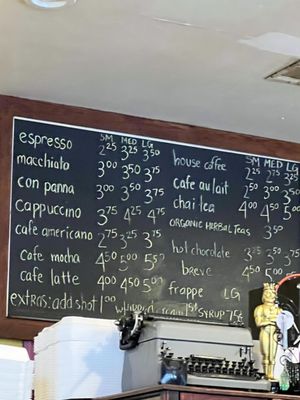 SM MED LG
espresso 2²⁵ 3²⁵ 3⁵⁰
macchiato 3⁰⁰ 3⁵⁰ 3⁷⁵
con panna 3⁰⁰ 3⁵⁰ 3⁷⁵
Cappuccino 3⁷⁵ 4²⁵ 4⁷⁵
cafe americano 2⁷⁵ 3²⁵ 3⁷⁵
cafe mocha 4⁵⁰ 5⁰⁰
cafe latte 4⁰⁰ 4⁵⁰ 5⁰⁰
extras: add shot 1⁰⁰
SYRUP 75¢
SM MED LG
house coffee 2²⁵ 2⁷⁵ 3²⁵
cafe au lait 2⁵⁰ 3⁰⁰ 3⁵⁰
chai tea 4⁰⁰ 4⁵⁰ 5⁰⁰
ORGANIC HERBAL TEAS 3⁵⁰
hot chocolate 3²⁵ 3⁵⁰
breve 4⁵⁰ 5⁰⁰
frappe LG